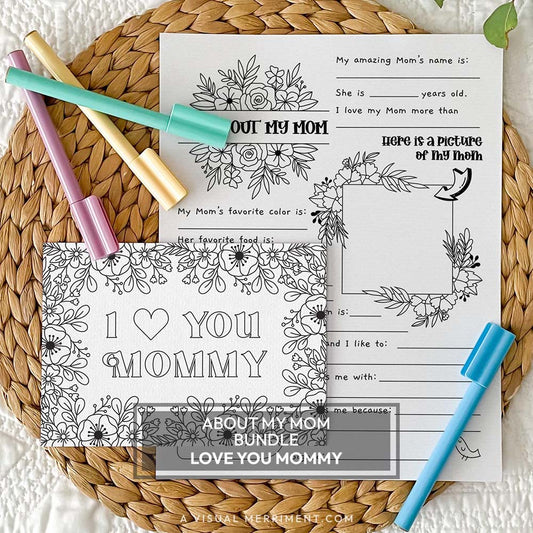 My amazing Mom's name is:
She is ________ years old.
I love my Mom more than
OUT MY MOM
Here is a picture
of my mom
My Mom's favorite color is:
Her favorite food is:
I ♡ YOU
MOMMY
is:
and I like to:
s me with:
s me because:
ABOUT MY MOM
BUNDLE
LOVE YOU MOMMY
A VISUAL MERRIMENT.COM